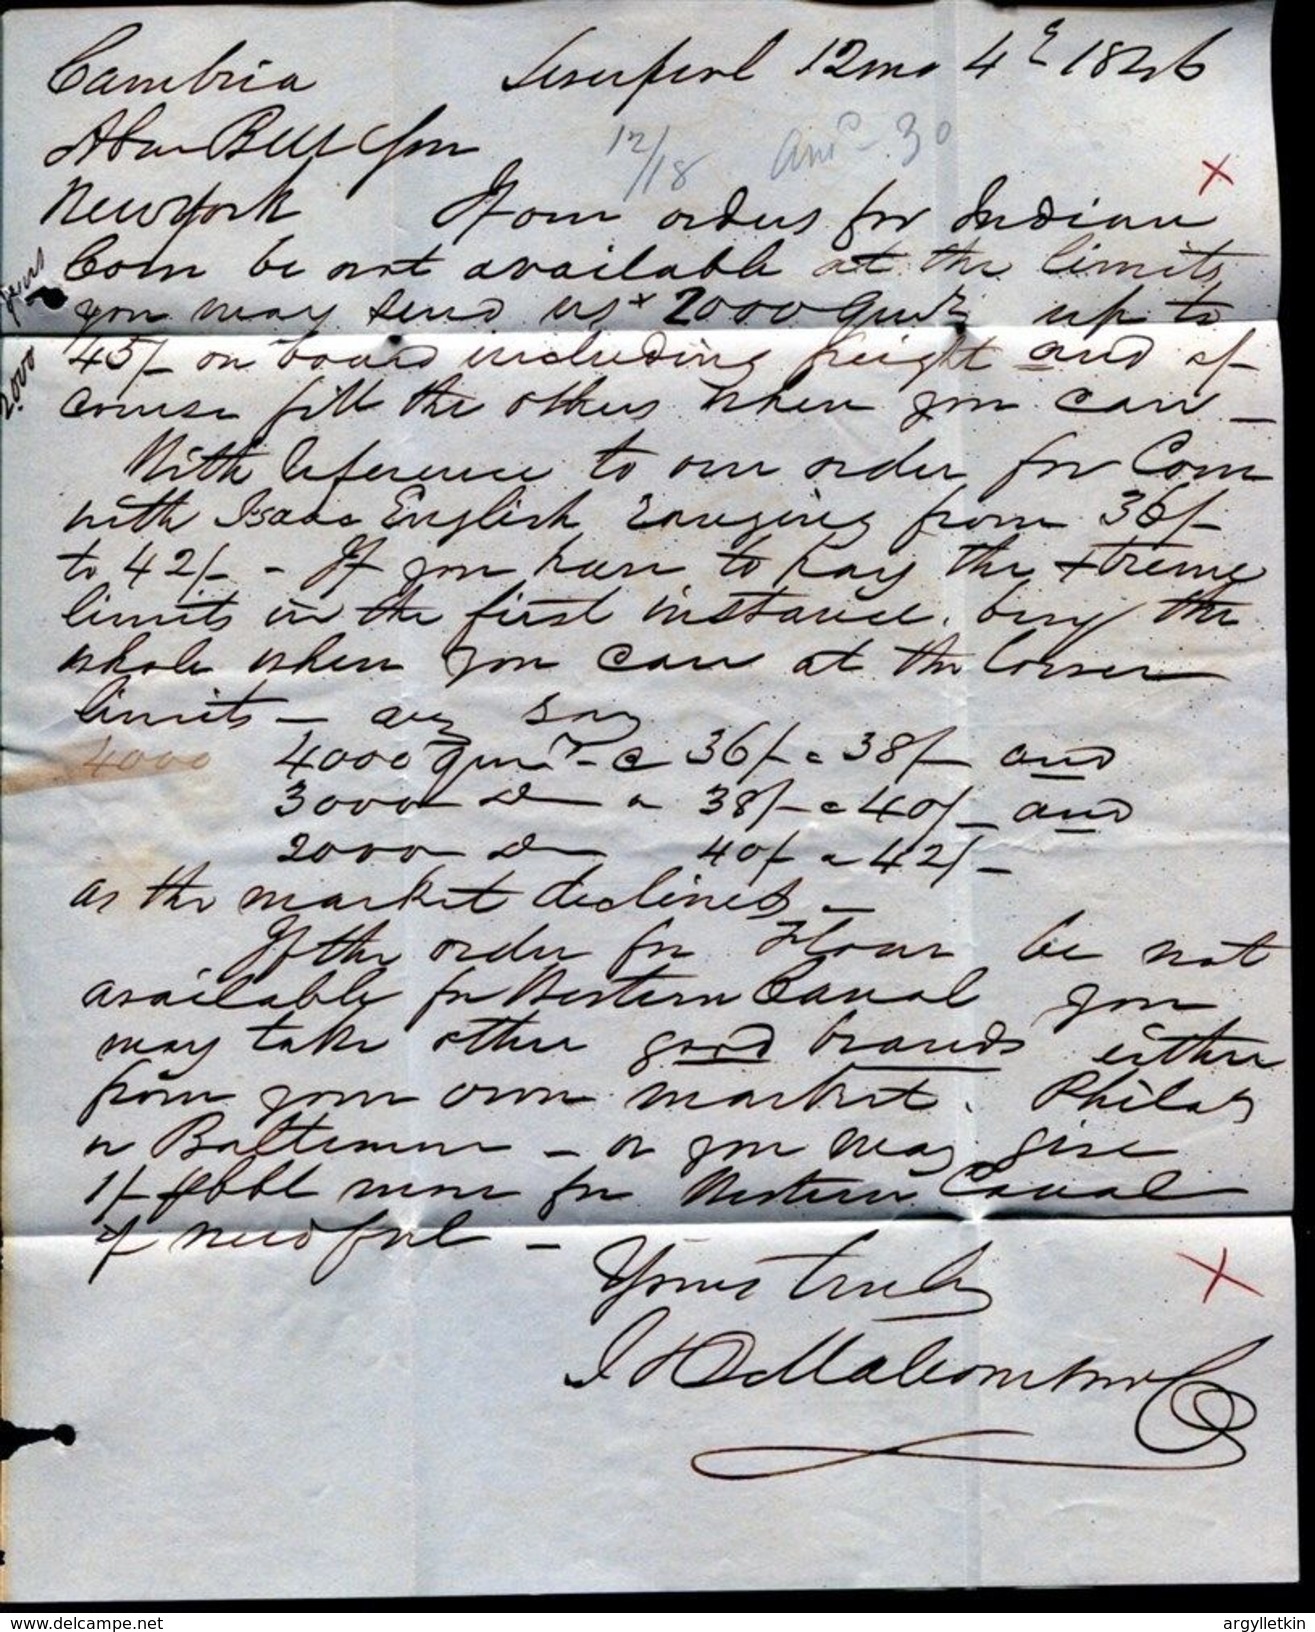 Cambria Liverpool 12mo 4th 1846
Abm Bell & Son 12/18 Ansd. 30
New York If our orders for Indian
Corn be not available at the limits
you may send us + 2000 Qurs up to
45/- on board including freight and of
course fill the others when you can -
With reference to our order for Corn
with Isaac English ranging from 36/-
to 42/- - If you have to pay the xtreme
limits in the first instance. buy the
whole when you can at the lower
limits - say
4000 4000 Qurs - @ 36/- a 38/- and
3000 Do a 38/- a 40/- and
2000 Do 40/- a 42/-
as the market declines -
If the order for Flour be not
available for Western Canal you
may take other good brands either
from your own market. Philada
or Baltimore - or you may give
1/- pbbl more for Western Canal
if needful -
Yours truly
2000
delcampe.net
argylletkin